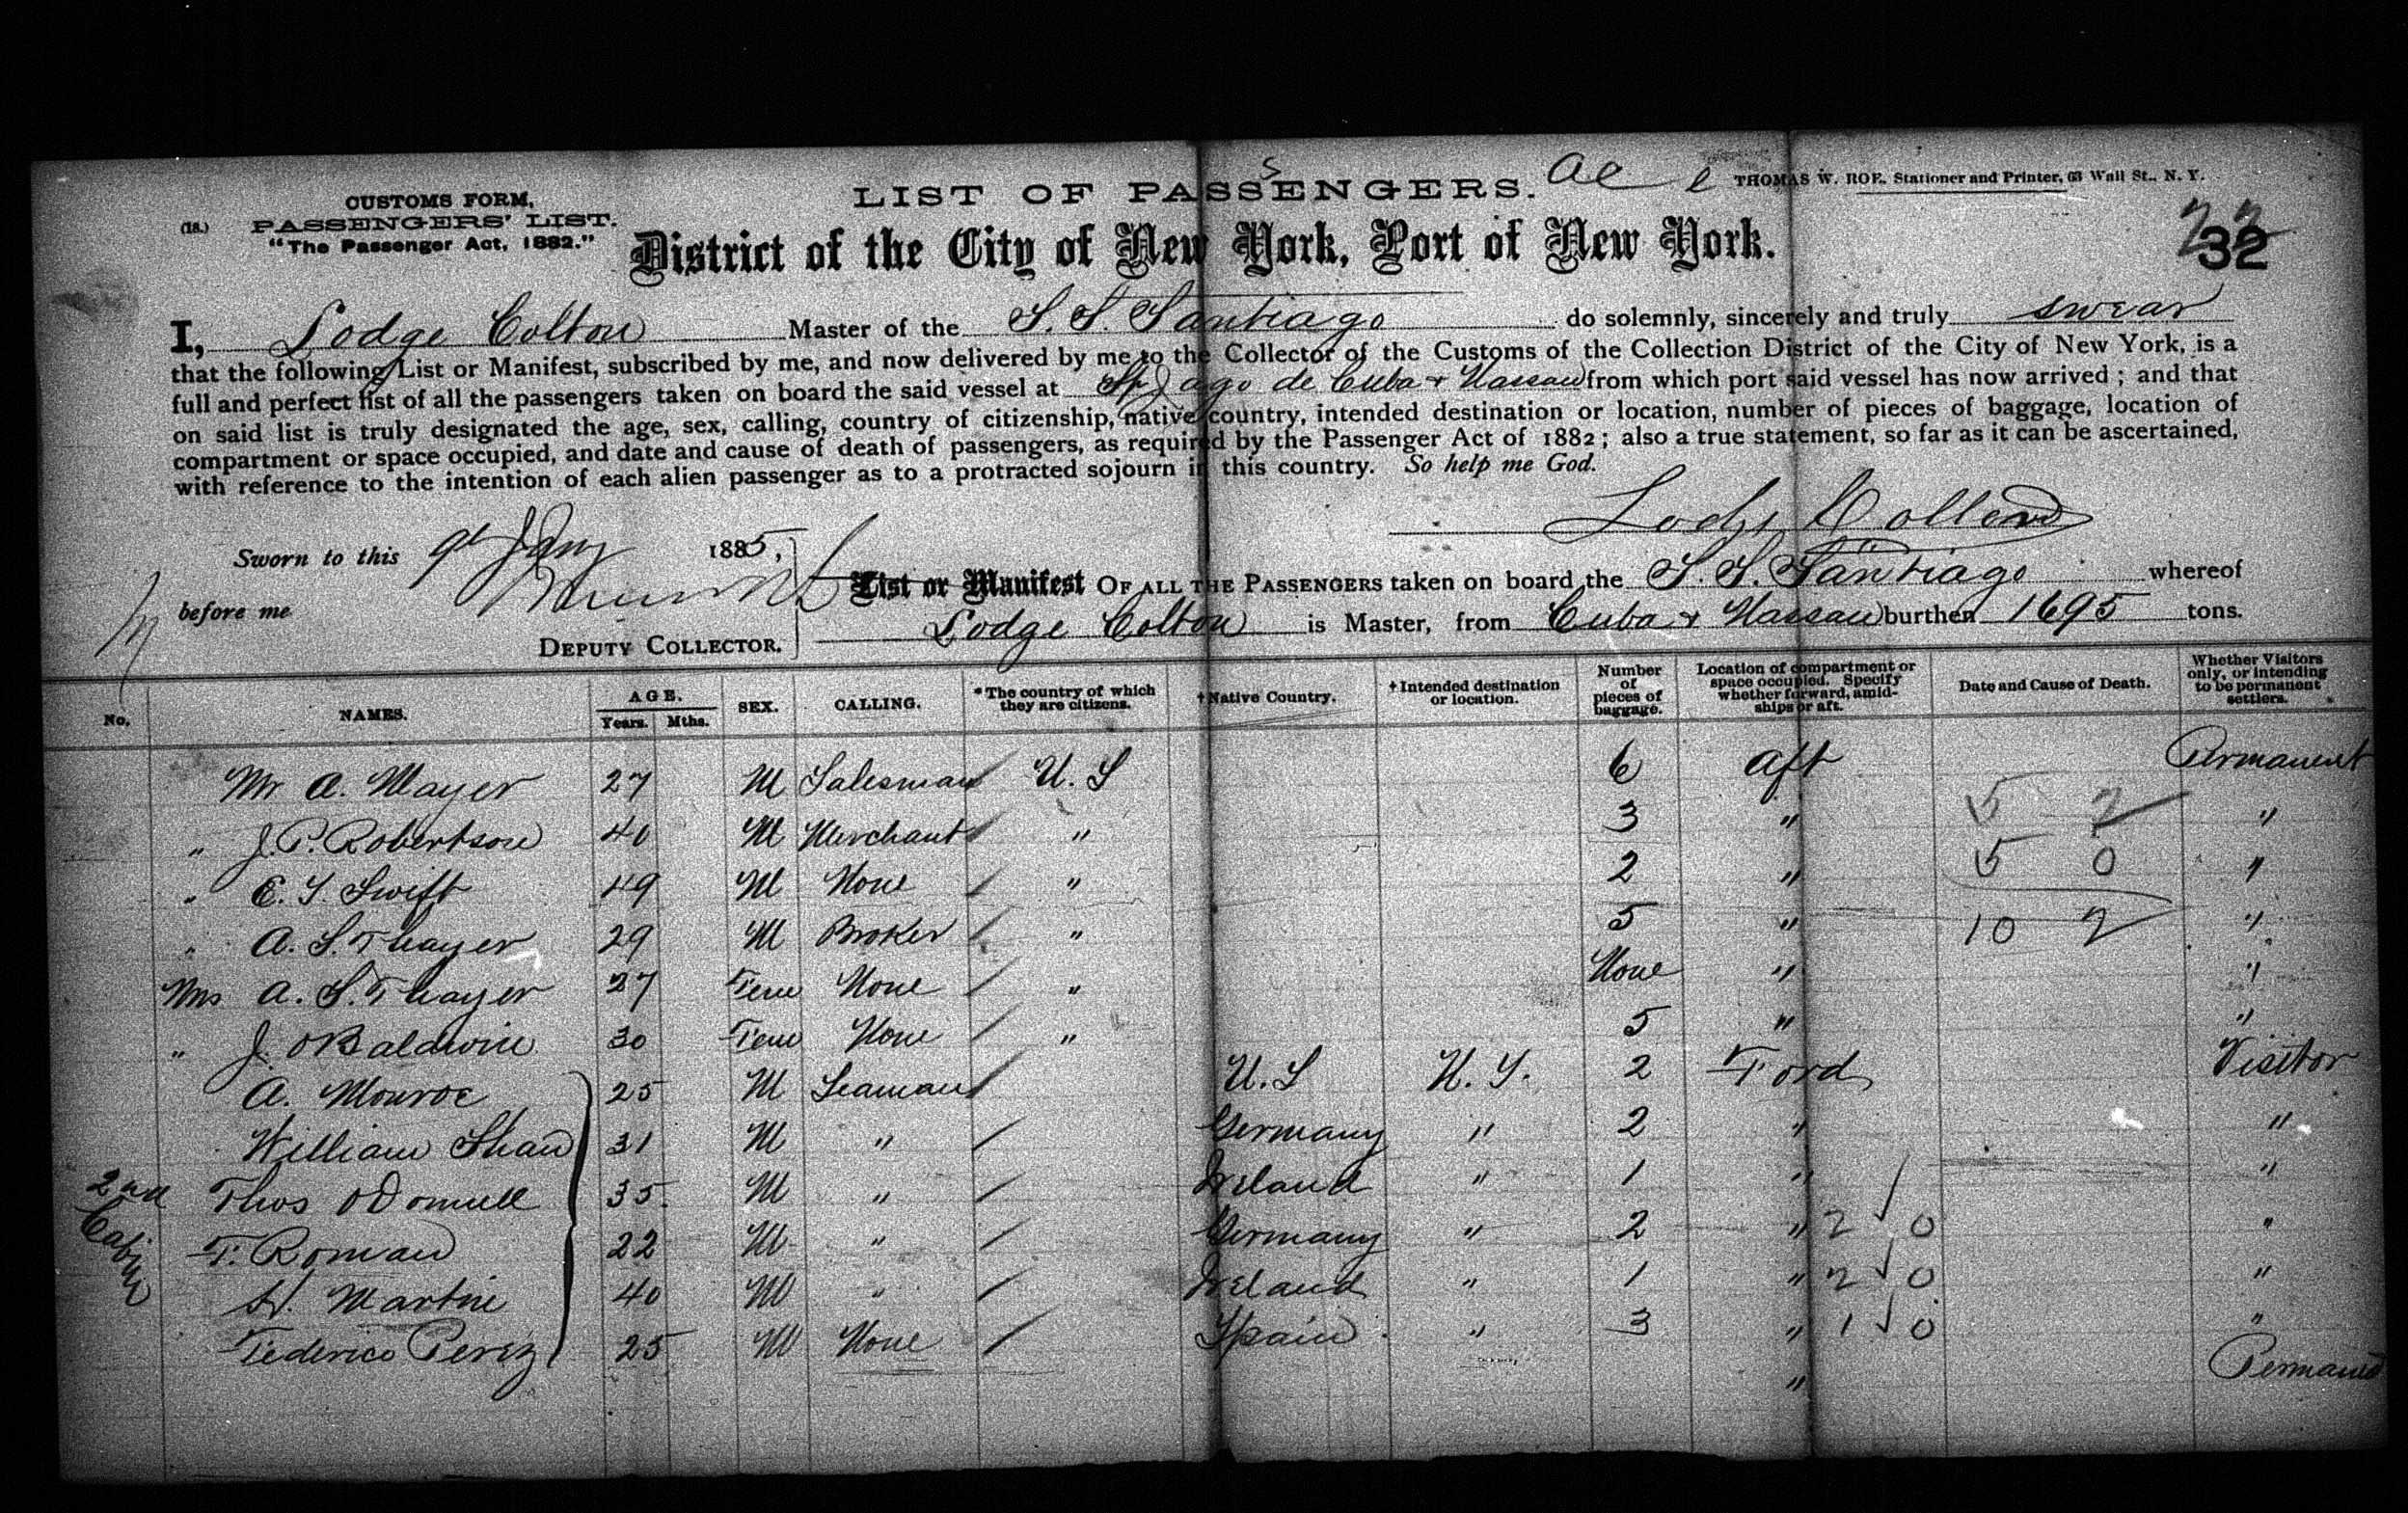 LIST OF PASSENGERS.
THOMAS W. ROE. Stationer and Printer, 63 Wall St., N. Y.
CUSTOMS FORM,
(18.) PASSENGERS' LIST.
"The Passenger Act, 1882."
District of the City of New York, Port of New York.
32
I, Lodge Colton Master of the S. S. Santiago do solemnly, sincerely and truly swear
that the following List or Manifest, subscribed by me, and now delivered by me to the Collector of the Customs of the Collection District of the City of New York, is a
full and perfect list of all the passengers taken on board the said vessel at St Jago de Cuba + Nassau from which port said vessel has now arrived; and that
on said list is truly designated the age, sex, calling, country of citizenship, native country, intended destination or location, number of pieces of baggage, location of
compartment or space occupied, and date and cause of death of passengers, as required by the Passenger Act of 1882; also a true statement, so far as it can be ascertained,
with reference to the intention of each alien passenger as to a protracted sojourn in this country. So help me God.
Lodge Colton
Sworn to this 9th Jany 1885,
before me
DEPUTY COLLECTOR.
List or Manifest OF ALL THE PASSENGERS taken on board the S. S. Santiago whereof
Lodge Colton is Master, from Cuba + Nassau burthen 1695 tons.
No. NAMES. AGE. Years. Mths. SEX. CALLING. *The country of which they are citizens. †Native Country. †Intended destination or location. Number of pieces of baggage. Location of compartment or space occupied. Specify whether forward, amidships or aft. Date and Cause of Death. Whether Visitors only, or intending to be permanent settlers.
Mr A. Mayer 27 M Salesman U. S 6 Aft Permanent
" J. P. Robertson 40 M Merchant " 3 " 5 2 "
" E. Y. Swift 49 M None " 2 " 5 0 "
" A. S. Thayer 29 M Broker " 5 " 10 2 "
Mrs A. S. Thayer 27 Fem None " None " "
" J. Baldwin 30 Fem None " 5 " "
A. Monroe 25 M Seaman U. S N. Y. 2 Ford Visitor
William Shaw 31 M " Germany " 2 " "
2nd Cabin Thos ODonnell 35 M " Ireland " 1 " "
F. Roman 22 M " Germany " 2 " 2 ✓ 0 "
W. Martin 40 M " Ireland " 1 " 2 ✓ 0 "
Federico Perez 25 M None Spain " 3 " 1 ✓ 0 "
" Permanent